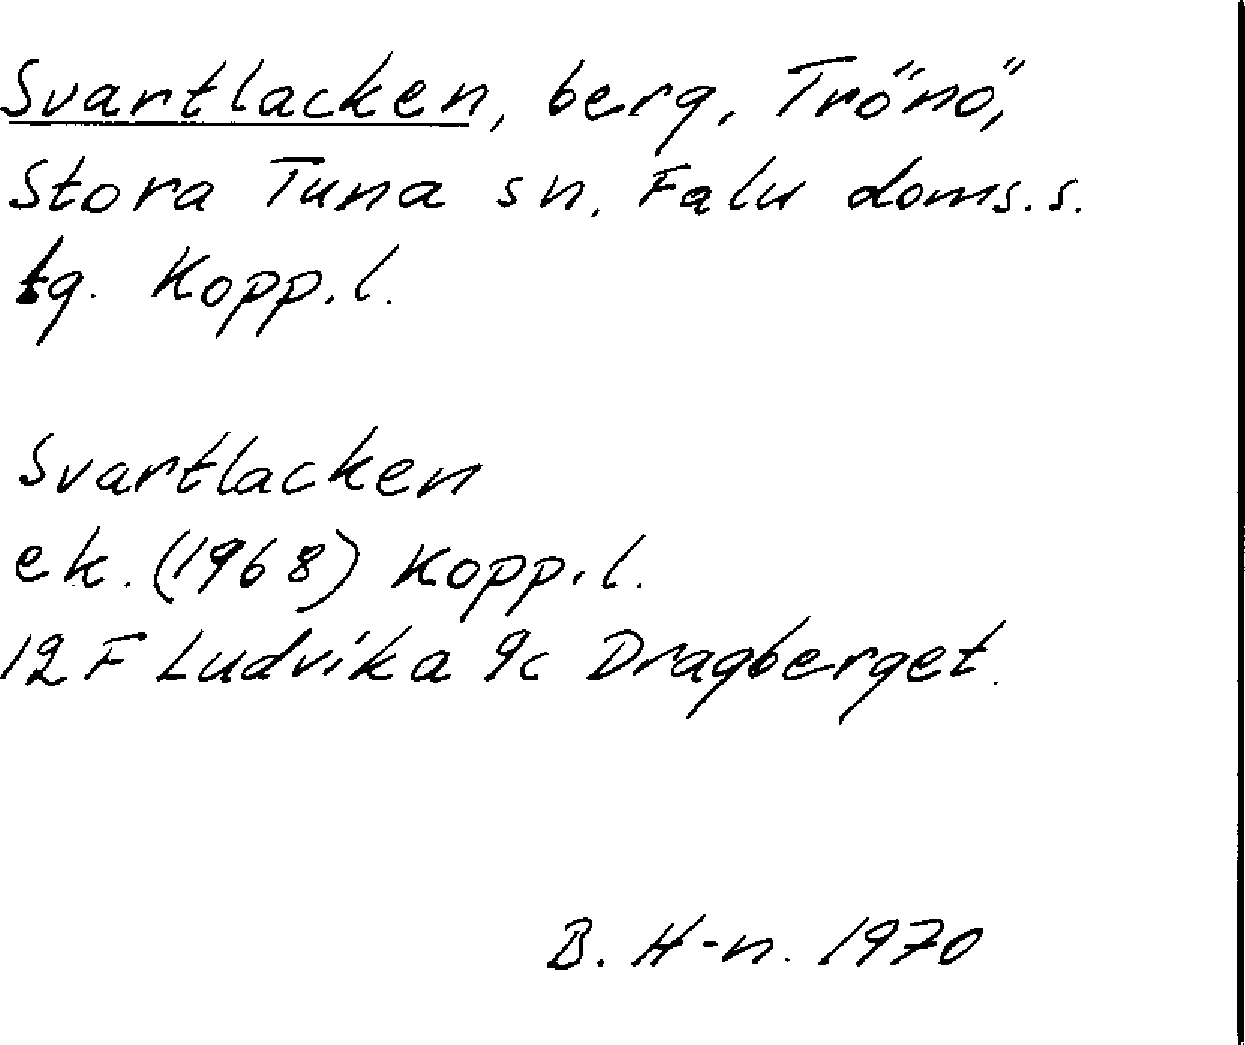 Svartlacken, berg, Trönö,
Stora Tuna sn. Falu doms.s.
tg. Kopp.l.
Svartlacken
ek. (1968) Kopp.l.
12 F Ludvika 9c Dragberget.
B. H-n. 1970